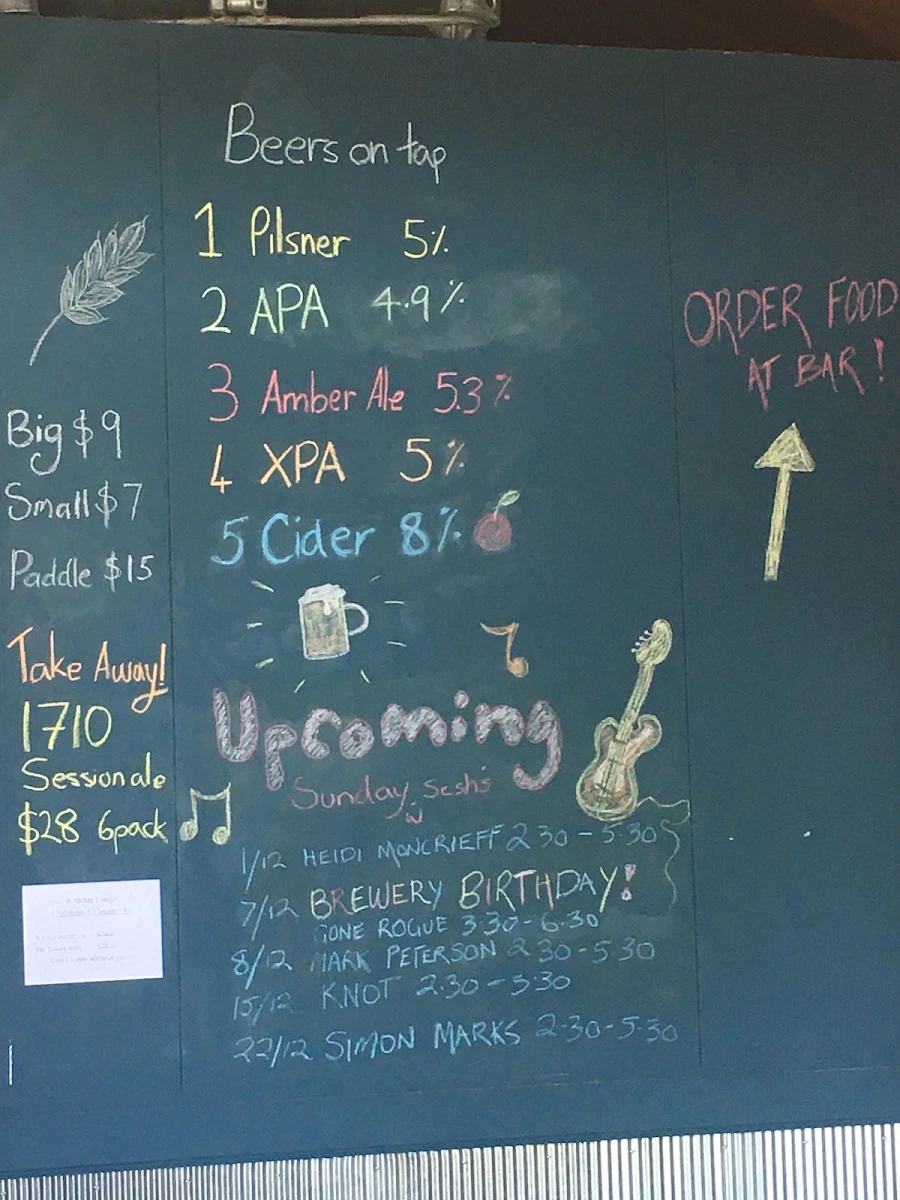 Beers on tap
1 Pilsner 5%
2 APA 4.9%
3 Amber Ale 5.3%
4 XPA 5%
5 Cider 8%
ORDER FOOD
AT BAR!
Big $9
Small $7
Paddle $15
Take Away!
1710
Session ale
$28 6pack
Upcoming
Sunday Sesh's
W
1/12 HEIDI MONCRIEFF 2.30 - 5.30
7/12 BREWERY BIRTHDAY!
GONE ROGUE 3.30 - 6.30
8/12 MARK PETERSON 2.30 - 5.30
15/12 KNOT 2.30 - 5.30
22/12 SIMON MARKS 2.30 - 5.30